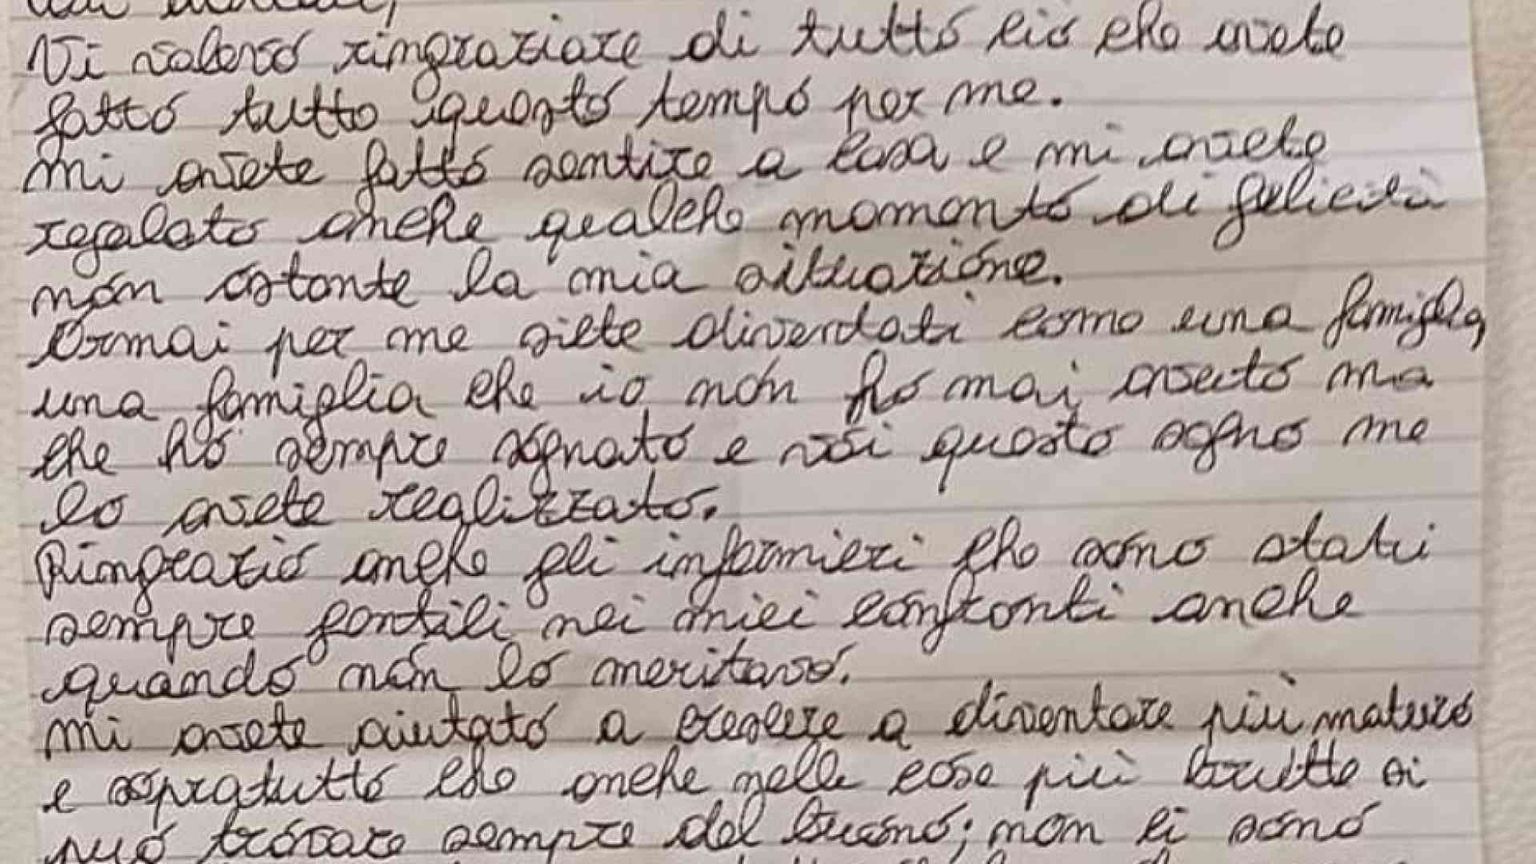 Vi volevo ringraziare di tutto ciò che avete
fatto tutto questo tempo per me.
Mi avete fatto sentire a casa e mi avete
regalato anche qualche momento di felicità
non ostante la mia situazione.
Ormai per me siete diventati come una famiglia,
una famiglia che io non ho mai avuto ma
che ho sempre sognato e voi questo sogno me
lo avete realizzato.
Ringrazio anche gli infermieri che sono stati
sempre gentili nei miei confronti anche
quando non lo meritavo.
Mi avete aiutato a crescere a diventare più maturo
e sopratutto che anche nelle cose più brutte si
può trovare sempre del buono; non ci sono